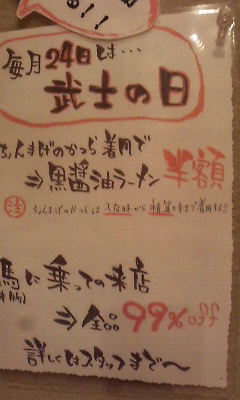 !!
毎月24日は…
武士の日
ちょんまげのかつら着用で
⇒黒醤油ラーメン 半額
注 ちょんまげのかつらは入店時から精算まで着用
馬に乗っての来店
⇒全品99%off
詳しくはスタッフまで〜